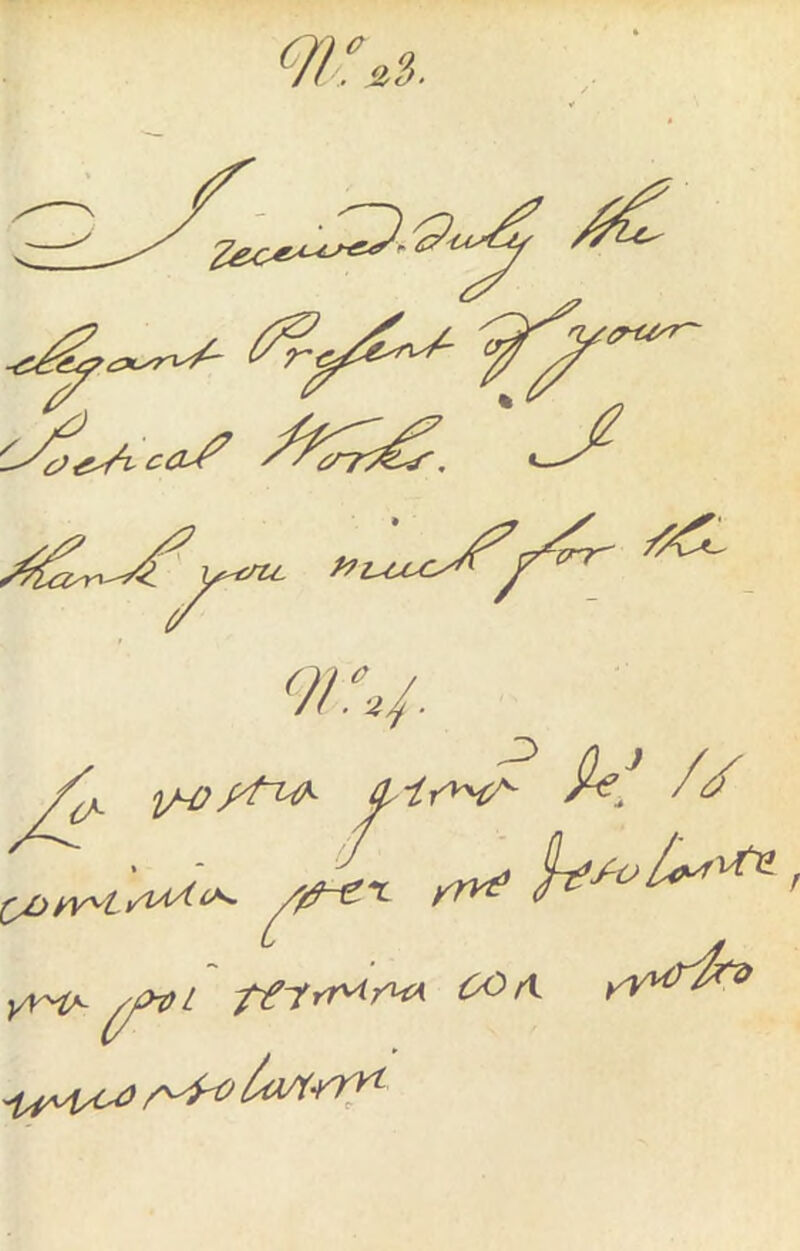 N.º 23.
I received duly the
elegant Present of your
Poetical Works. I
thank you much for the
N.º 24.
La vostra de' 16
comincia per me desolante,
ma poi termina con molto